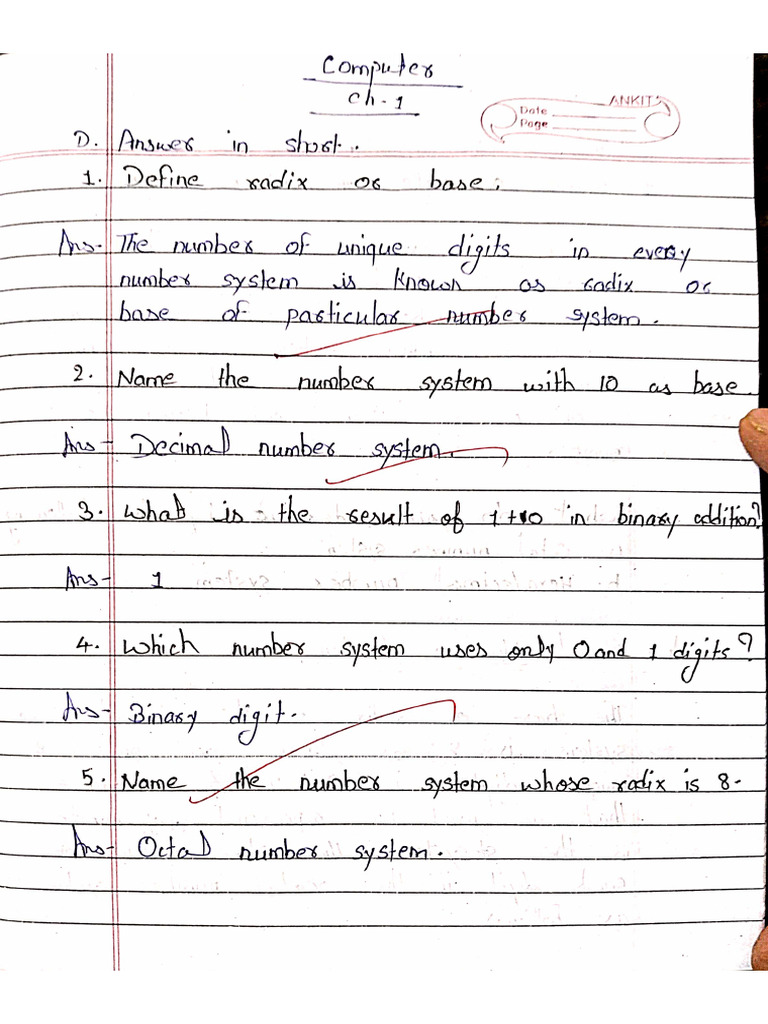 Computer
Ch-1
ANKIT
Date
Page
D. Answer in short.
1. Define radix or base:
Ans- The number of unique digits in every
number system is known as radix or
base of particular number system.
2. Name the number system with 10 as base.
Ans- Decimal number system.
3. What is the result of 1+0 in binary addition?
Ans- 1
4. Which number system uses only 0 and 1 digits?
Ans- Binary digit.
5. Name the number system whose radix is 8.
Ans- Octal number system.